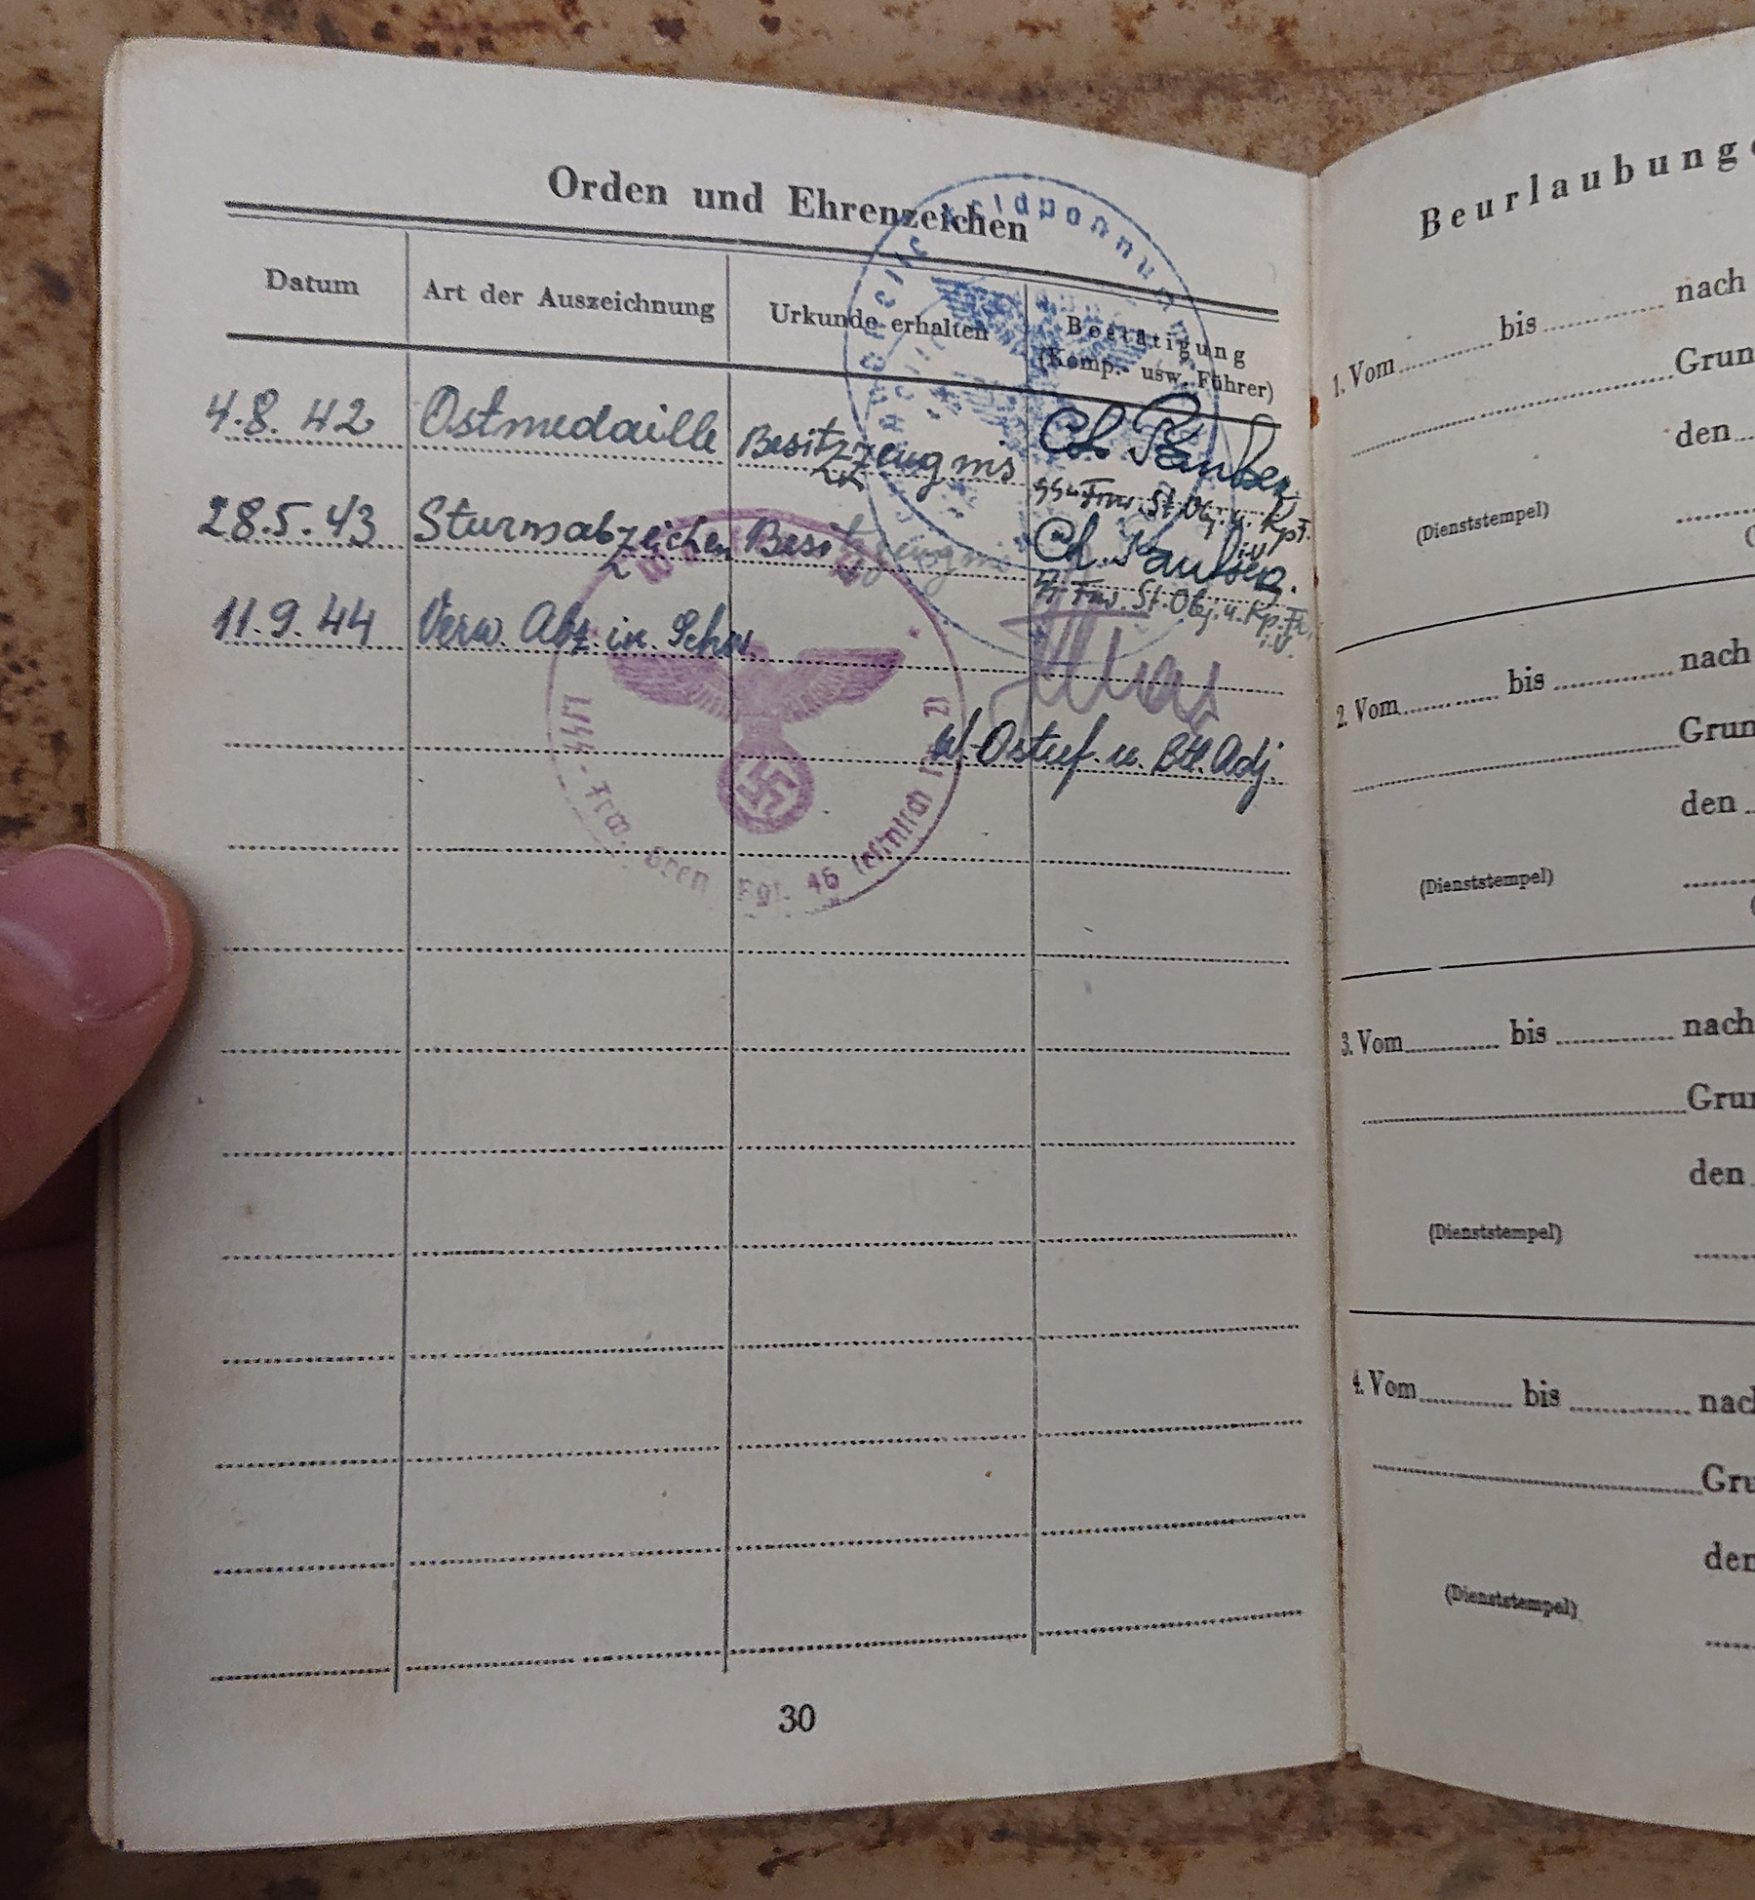 Orden und Ehrenzeichen
Datum Art der Auszeichnung Urkunde erhalten Bestätigung
(Komp.- usw. Führer)
4.8.42 Ostmedaille Besitzzeugnis
28.5.43 Sturmabzeichen Besitzzeugnis
11.9.44 Verw. Abz. in. Schw.
Ostuf. u. Btl. Adj.
Gren Rgt. 46
30
Beurlaubunge
1. Vom bis nach
Grun
den
(Dienststempel)
2. Vom bis nach
Grun
den
(Dienststempel)
3. Vom bis nach
Grun
den
(Dienststempel)
4. Vom bis nach
Gru
den
(Dienststempel)